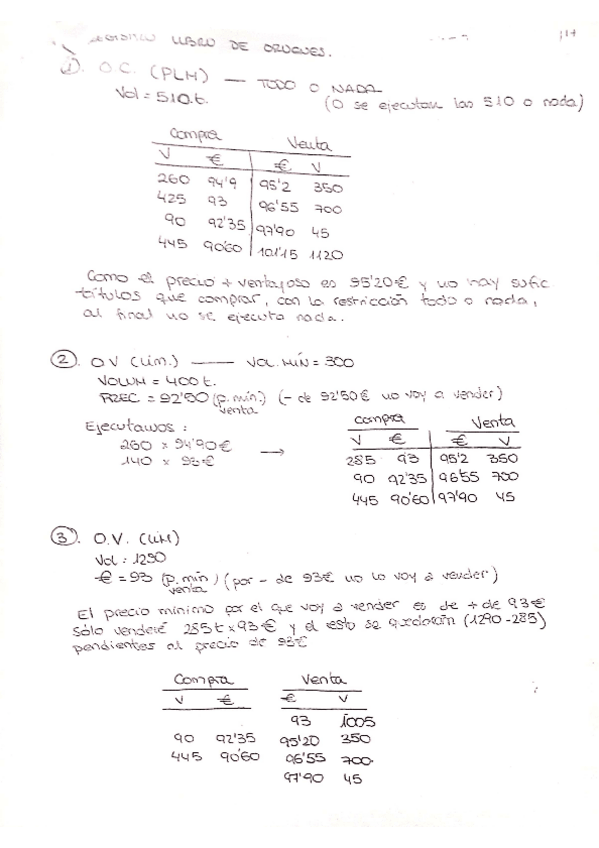 LIBRO DE ORDENES.
1). O.C. (PLM) — TODO O NADA
Vol = 510.t. (O se ejecutan las 510 o nada)
Compra Venta
V € € V
260 94'9 95'2 350
425 93 96'55 700
90 92'35 97'90 45
445 90'60 101'15 1120
Como el precio + ventajoso es 95'20€ y no hay sufic.
títulos que comprar, con la restricción todo o nada,
al final no se ejecuta nada.
2). O.V (Lim.) —— VOL. MÍN = 300
VOLUM = 400 t.
PREC = 92'50 (p. mín.) (- de 92'50€ no voy a vender)
venta
Ejecutamos:
260 x 94'90€
140 x 93€ →
Compra Venta
V € € V
285 93 95'2 350
90 92'35 96'55 700
445 90'60 97'90 45
3). O.V. (LIM)
Vol: 1290
€ = 93 (p. mín) (por - de 93€ no lo voy a vender)
venta
El precio mínimo por el que voy a vender es de + de 93€
sólo venderé 285t x 93€ y el esto se quedarán (1290-285)
pendientes al precio de 93€
Compra Venta
V € € V
93 1005
90 92'35 95'20 350
445 90'60 96'55 700
97'90 45